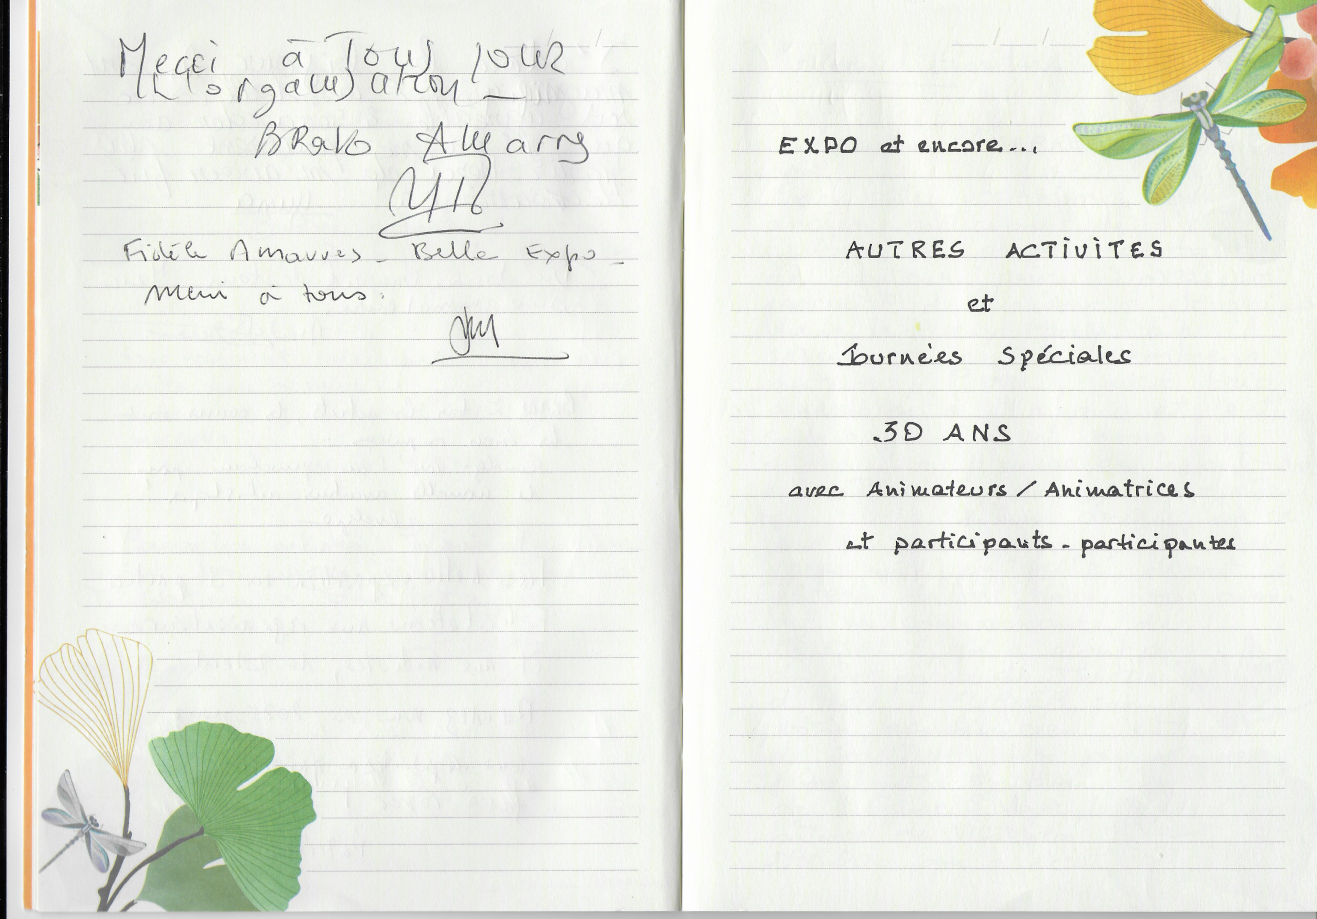 Merci à Tous pour
L'organisation _
BRavo
Fidèle Amavves _ Belle Expo _
Merci à tous.
EXPO et encore...
AUTRES ACTIVITES
et
Journées Spéciales
30 ANS
avec Animateurs / Animatrices
et participants - participantes